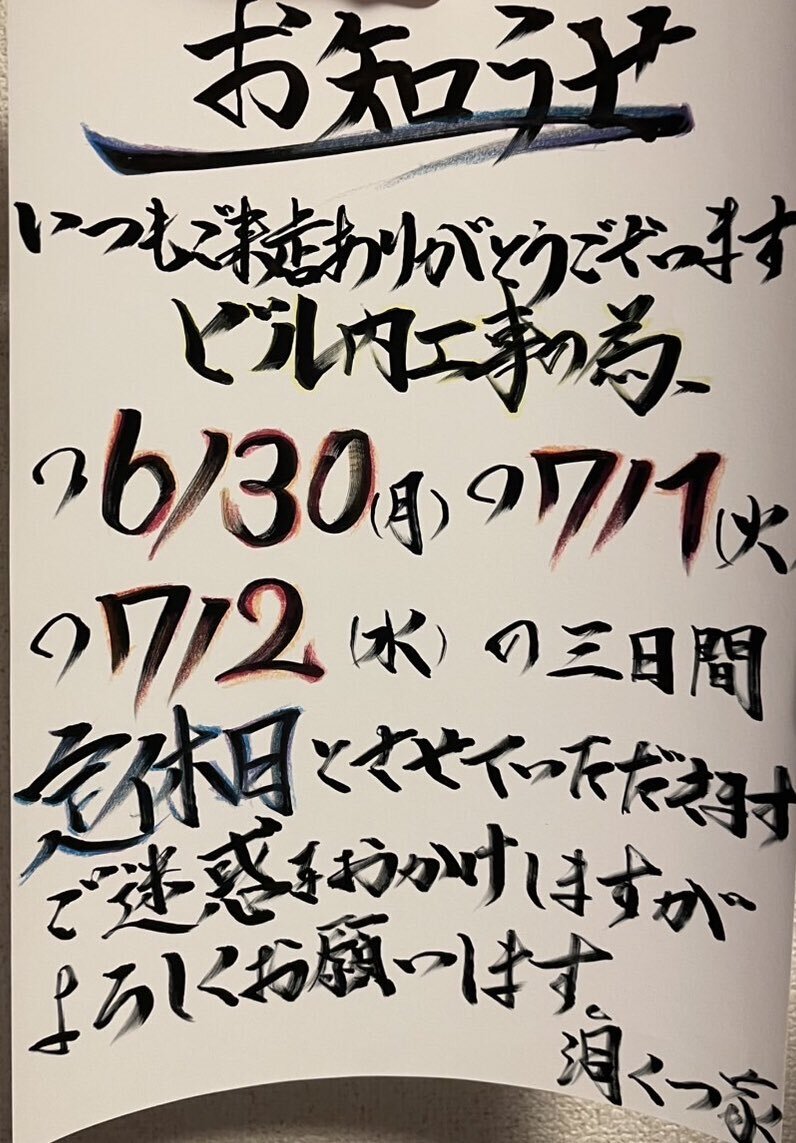 お知らせ
いつもご来店ありがとうございます
ビル内工事の為、
の6/30(月)の7/1(火
の7/2(水)の三日間
定休日とさせていただきます
ご迷惑をおかけしますが
よろしくお願いします。
家